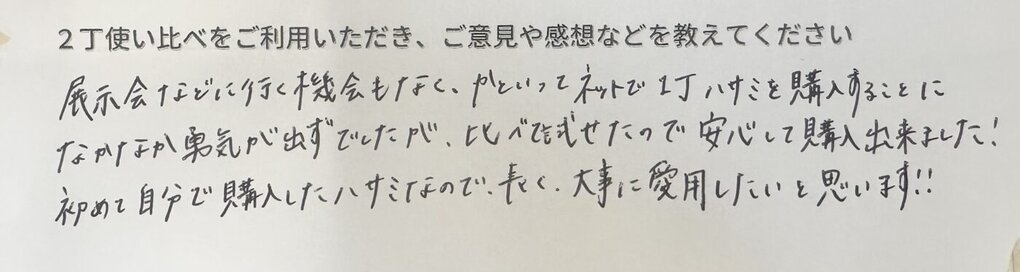 ２丁使い比べをご利用いただき、ご意見や感想などを教えてください
展示会などに行く機会もなく、かといってネットで1丁ハサミを購入することに
なかなか勇気が出ずでしたが、比べて試せたので安心して購入出来ました!
初めて自分で購入したハサミなので、長く、大事に愛用したいと思います!!